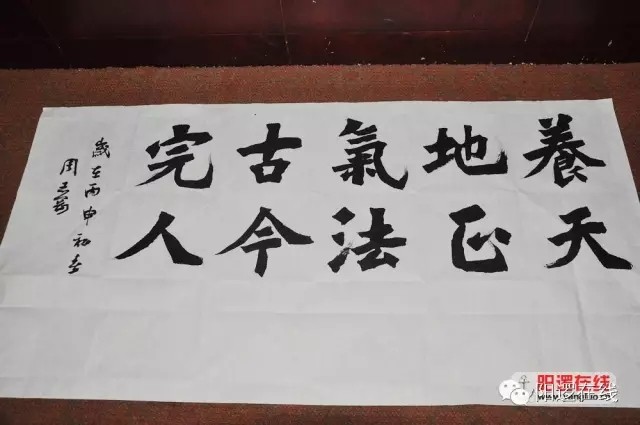 養天
地正
氣法
古今
完人
歲在丙申初春
周
阳逻在线
阳逻在线